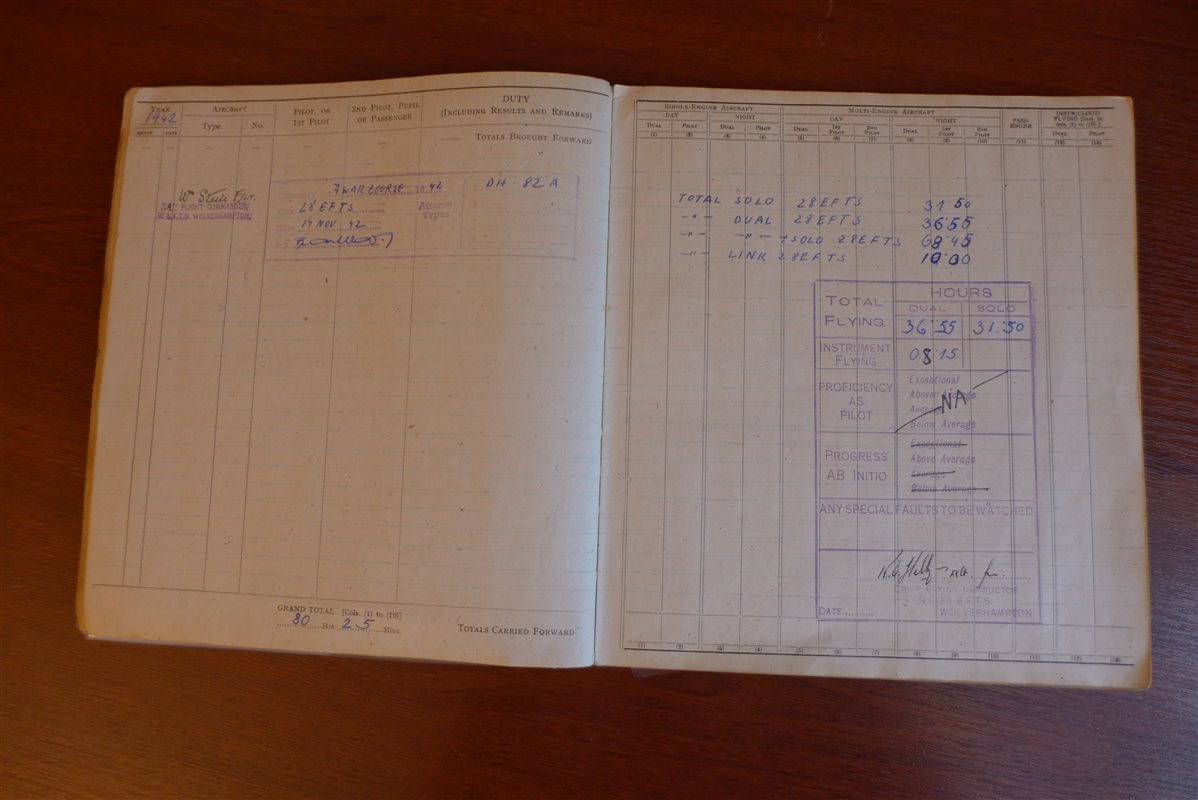 YEAR
1942
AIRCRAFT
PILOT, OR
1ST PILOT
2ND PILOT, PUPIL
OR PASSENGER
DUTY
(INCLUDING RESULTS AND REMARKS)
MONTH DATE
Type No.
TOTALS BROUGHT FORWARD
7 WAR COURSE 1942 DH 82A
Wm Steele F/Lt.
28 EFTS Aircraft
FLIGHT COMMANDER
Types
E.F.T.S. WOLVERHAMPTON
19 NOV 42
GRAND TOTAL [Cols. (1) to (10)]
80 Hrs. 25 Mins.
TOTALS CARRIED FORWARD
SINGLE-ENGINE AIRCRAFT MULTI-ENGINE AIRCRAFT PASS-ENGER
DAY NIGHT DAY NIGHT
DUAL PILOT DUAL PILOT DUAL 1ST PILOT 2ND PILOT DUAL 1ST PILOT 2ND PILOT DUAL PILOT
(1) (2) (3) (4) (5) (6) (7) (8) (9) (10) (11) (12) (13)
TOTAL SOLO 28 EFTS 31 50
-"- DUAL 28 EFTS 36 55
-"- -"- + SOLO 28 EFTS 68 45
-"- LINK 28 EFTS 10 00
TOTAL
FLYING
HOURS
DUAL SOLO
36 55 31 50
INSTRUMENT
FLYING
08 15
PROFICIENCY
AS
PILOT
Exceptional
Above Average
Average
Below Average
NA
PROGRESS
AB INITIO
Exceptional
Above Average
Average
Below Average
ANY SPECIAL FAULTS TO BE WATCHED
CHIEF FLYING INSTRUCTOR
No. 28 E.F.T.S.
DATE WOLVERHAMPTON
(1) (2) (3) (4) (5) (6) (7) (8) (9) (10) (11) (12) (13)